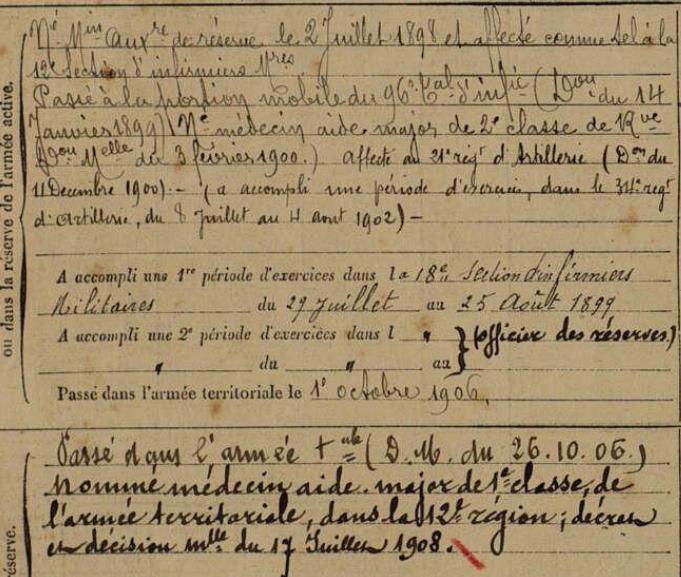 Né Min Auxre de réserve le 2 Juillet 1898 et affecté comme tel à la
12e Section d'infirmiers Mres
Passé à la portion mobile du 96e tal d'infie (Don du 14
Janvier 1899) Né médecin aide major de 2e classe de Rve
Don Melle du 3 février 1900.) affecté au 21e régt d'Artillerie (Don du
11 Decembre 1900).- (a accompli une période d'exercices, dans le 34e regt
d'Artillerie, du 8 Juillet au 4 aout 1902)-
A accompli une 1re période d'exercices dans la 18e Section d'infirmiers
Militaires du 29 Juillet au 25 Août 1899
A accompli une 2e période d'exercices dans l " (officier des réserves)
" du " au
Passé dans l'armée territoriale le 1er octobre 1906.
Passé dans l'armée tale (D.M. du 26.10.06)
nommé médecin aide.major de 1e classe, de
l'armée territoriale, dans la 12e région; décret
et décision mlle du 17 Juillet 1908.
ou dans la réserve de l'armée active.
réserve.